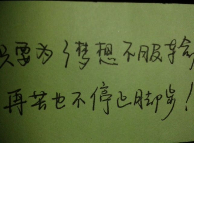 只要为了梦想不服输
再苦也不停止脚步!